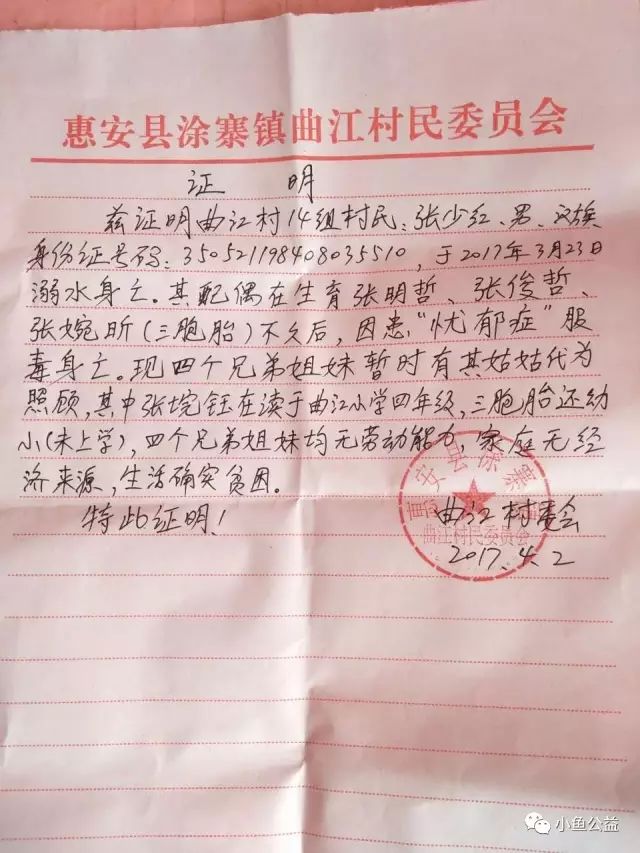 惠安县涂寨镇曲江村民委员会
证 明
兹证明曲江村14组村民:张少红、男、汉族
身份证号码:350521198408035510,于2017年3月23日
溺水身亡。其配偶在生育张明哲、张俊哲、
张婉昕(三胞胎)不久后,因患“忧郁症”服
毒身亡。现四个兄弟姐妹暂时有其姑姑代为
照顾,其中张婉钰在读于曲江小学四年级,三胞胎还幼
小(未上学),四个兄弟姐妹均无劳动能力,家庭无经
济来源,生活确实贫困。
特此证明!
曲江村委会
2017.4.2
惠安县涂寨镇
曲江村民委员会
小鱼公益